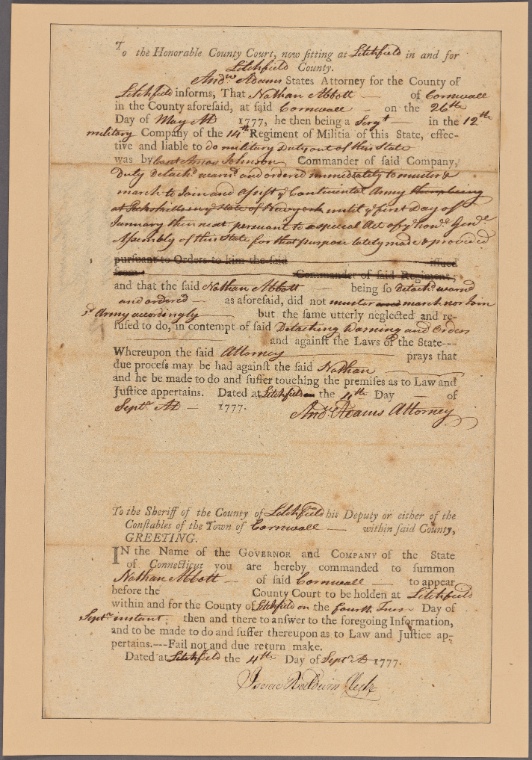 To the Honorable County Court, now sitting at Litchfield in and for
Litchfield County.
Andw Adams States Attorney for the County of
Litchfield informs, That Nathan Abbott — of Cornwall
in the County aforesaid, at said Cornwall — on the 26th
Day of May AD 1777, he then being a Sergt — in the 12th
military Company of the 14th Regiment of Militia of this State, effec-
tive and liable to do military Duty out of this State
was by Johnson Commander of said Company,
duly detachd warnd and ordered immediately to muster &
march to Join and Assist ye Continental Army then being
at Peekskill in ye State of Newyork until ye first Day of
January then next pursuant to a special Act of ye honle Genll
Assembly of this State, for that purpose lately made & provided
pursuant to Orders to him the said issued
Commander of said Regiment,
and that the said Nathan Abbott — being so detachd warnd
and ordered — as aforesaid, did not muster and march nor Join
sd Army accordingly — but the same utterly neglected and re-
fused to do, in contempt of said Detaching Warning and Orders
and against the Laws of the State—
Whereupon the said Attorney prays that
due process may be had against the said Nathan
and he be made to do and suffer touching the premises as to Law and
Justice appertains. Dated at Litchfield the 4th Day — of
Septr AD — 1777. Andw Adams Attorney
To the Sheriff of the County of Litchfield his Deputy or either of the
Constables of the Town of Cornwall — within said County,
GREETING.
IN the Name of the GOVERNOR and COMPANY of the State
of Connecticut you are hereby commanded to summon
Nathan Abbott — of said Cornwall — to appear
before the County Court to be holden at Litchfield
within and for the County of Litchfield on the fourth Tues Day of
Septr instant, then and there to answer to the foregoing Information,
and to be made to do and suffer thereupon as to Law and Justice ap-
pertains.—Fail not and due return make.
Dated at Litchfield the 4th Day of Septr AD 1777.
Isaac Baldwin Clerk